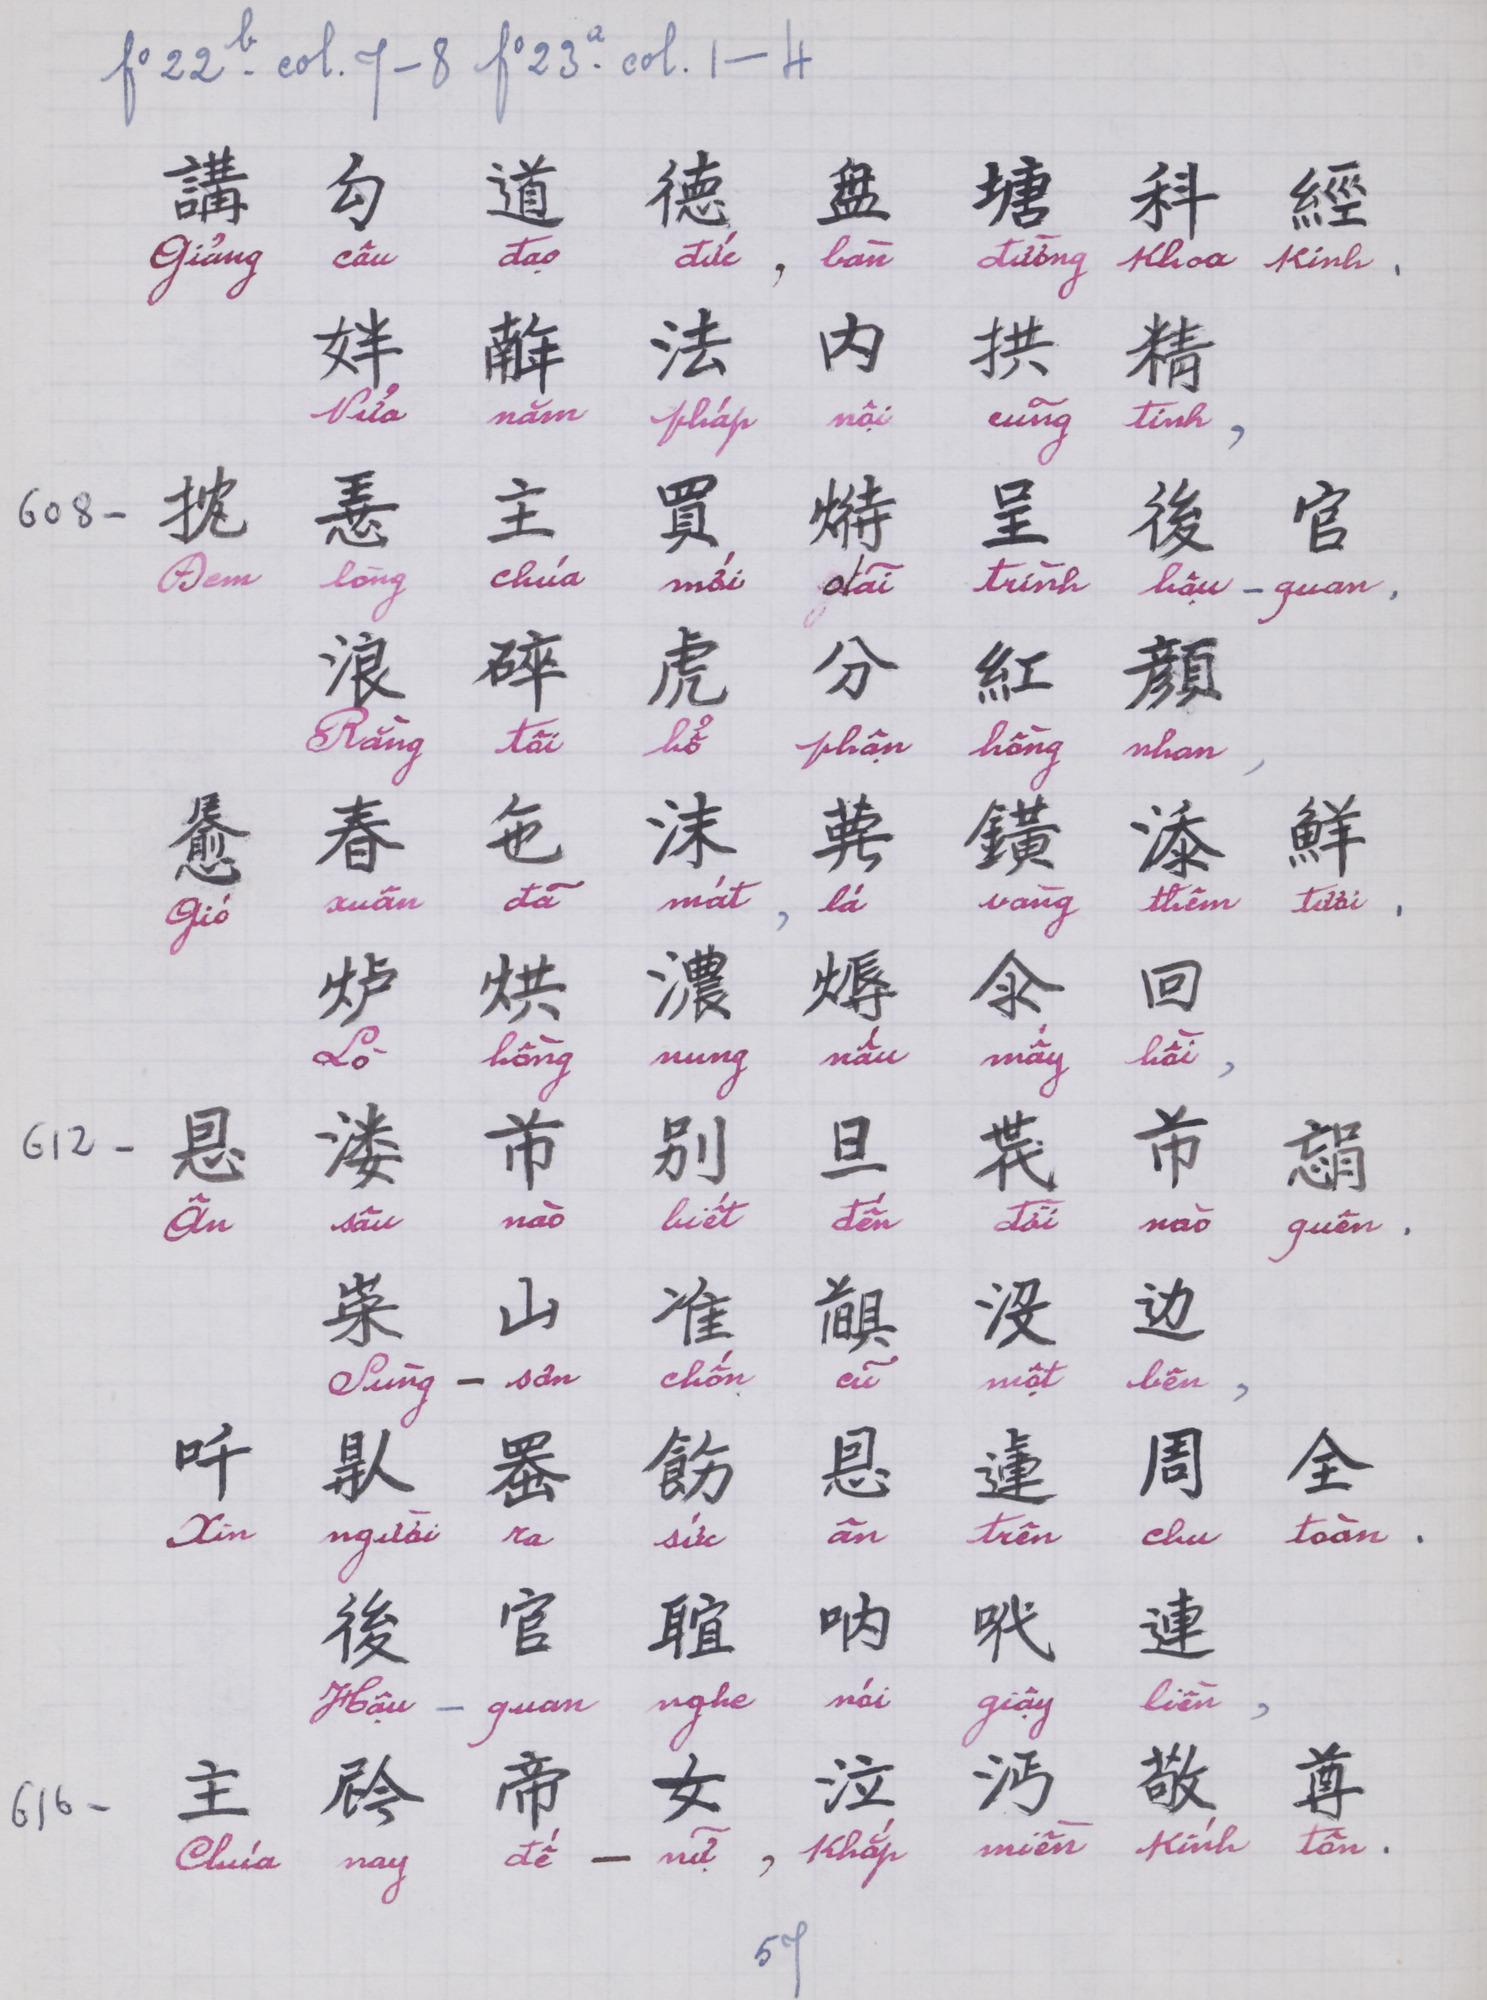 fº 22ᵇ. col. 7–8 fº 23ᵃ. col. 1–4
講 勾 道 德 盘 塘 科 經
Giảng câu đạo đức, bàn đường khoa kinh.
姅 法 内 拱 精
Nửa năm pháp nội cũng tinh,
608 – 主 買 呈 後 官
Đem lòng chúa mới dãi trình hậu – quan.
浪 碎 虎 分 紅 顔
Rằng tôi hổ phận hồng nhan,
春 沫 鐄 添 鮮
Gió xuân đã mát, lá vàng thêm tươi.
炉 烘 濃 㷮 回
Lò hồng nung nấu mấy hồi,
612 – 恩 溇 市 别 旦 市
Ân sâu nào biết đến đổi nào quên.
崇 山 准 沒 边
Sùng – sơn chốn cũ một bên,
吀 恩 周 全
Xin người ra sức ân trên chu toàn.
後 官 呐 連
Hậu – quan nghe nói giậy liền,
616 – 主 帝 女 泣 沔 敬 尊
Chúa nay đế – nữ, khắp miền kính tôn.
57